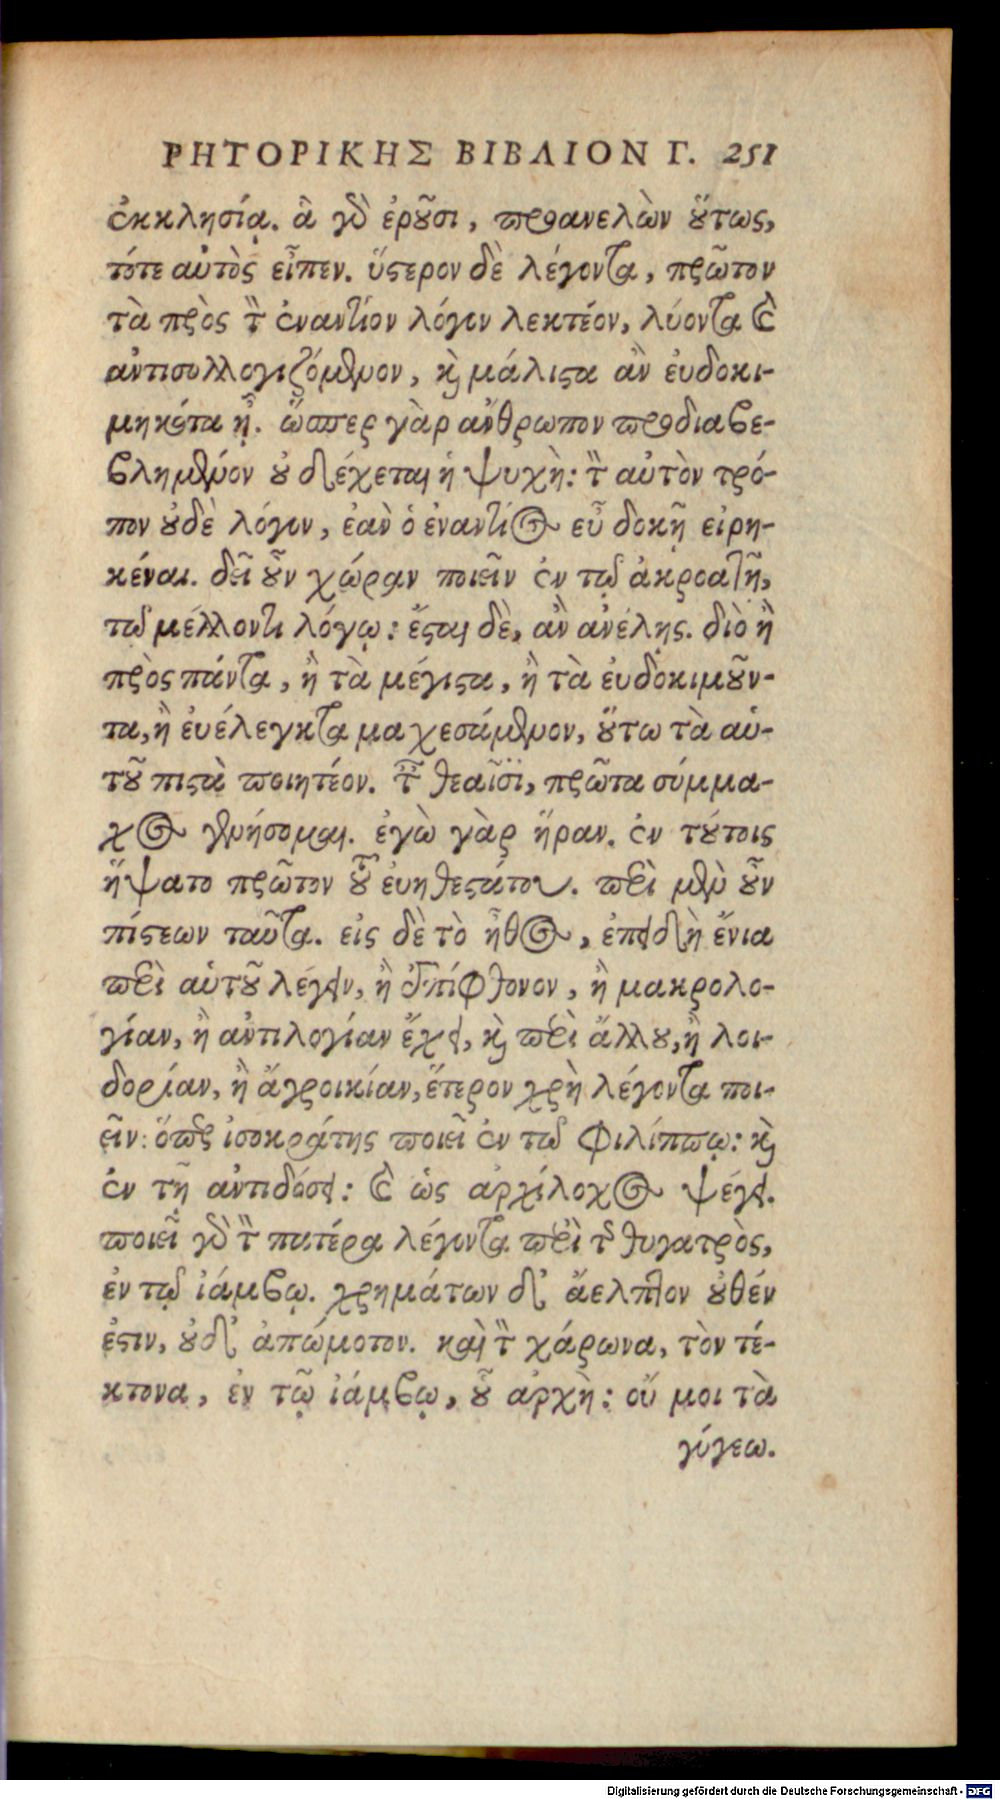 ΡΗΤΟΡΙΚΗΣ ΒΙΒΛΙΟΝ Γ. 251
ἐκκλησίᾳ. ἃ γὰρ ἐροῦσι, προανελὼν οὕτως,
τότε αὐτὸς εἶπεν. ὕστερον δὲ λέγοντα, πρῶτον
τὰ πρὸς τὸν ἐναντίον λόγον λεκτέον, λύοντα καὶ
ἀντισυλλογιζόμενον, καὶ μάλιστα ἂν εὐδοκι-
μηκότα ᾖ. ὥσπερ γὰρ ἄνθρωπον προδιαβε-
βλημένον οὐ δέχεται ἡ ψυχὴ: τὸν αὐτὸν τρό-
πον οὐδὲ λόγον, ἐὰν ὁ ἐναντίος εὖ δοκῇ εἰρη-
κέναι. δεῖ οὖν χώραν ποιεῖν ἐν τῷ ἀκροατῇ,
τῷ μέλλοντι λόγῳ: ἔσται δὲ, ἂν ἀνέλῃς. διὸ ἢ
πρὸς πάντα, ἢ τὰ μέγιστα, ἢ τὰ εὐδοκιμοῦν-
τα, ἢ εὐέλεγκτα μαχεσάμενον, οὕτω τὰ αὑ-
τοῦ πιστὰ ποιητέον. ταῖς θεαῖσϊ, πρῶτα σύμμα-
χος γενήσομαι. ἐγὼ γὰρ ἥραν. ἐν τούτοις
ἥψατο πρῶτον τοῦ εὐηθεστάτου. περὶ μὲν οὖν
πίστεων ταῦτα. εἰς δὲ τὸ ἦθος, ἐπειδὴ ἔνια
περὶ αὑτοῦ λέγειν, ἢ ἐπίφθονον, ἢ μακρολο-
γίαν, ἢ ἀντιλογίαν ἔχει, καὶ περὶ ἄλλου, ἢ λοι-
δορίαν, ἢ ἀγροικίαν, ἕτερον χρὴ λέγοντα ποι-
εῖν: ὅπερ ἰσοκράτης ποιεῖ ἐν τῷ Φιλίππῳ: καὶ
ἐν τῇ ἀντιδόσει: καὶ ὡς ἀρχίλοχος ψέγει.
ποιεῖ γὰρ τὸν πατέρα λέγοντα περὶ τῆς θυγατρὸς,
ἐν τῷ ἰάμβῳ. χρημάτων δ' ἄελπτον οὐθέν
ἐστιν, οὐδ' ἀπώμοτον. καὶ τὸν χάρωνα, τὸν τέ-
κτονα, ἐν τῷ ἰάμβῳ, οὗ ἀρχὴ: οὔ μοι τὰ
γύγεω.
Digitalisierung gefördert durch die Deutsche Forschungsgemeinschaft - DFG